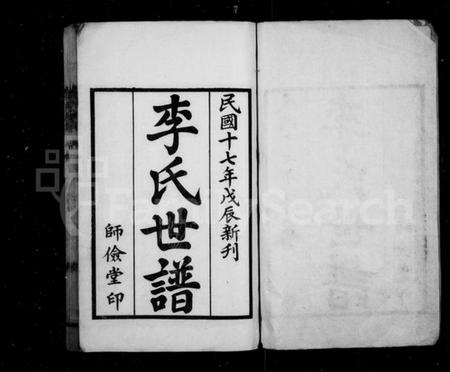 民國十七年戊辰新刊
李氏世譜
師儉堂印
FamilySearch